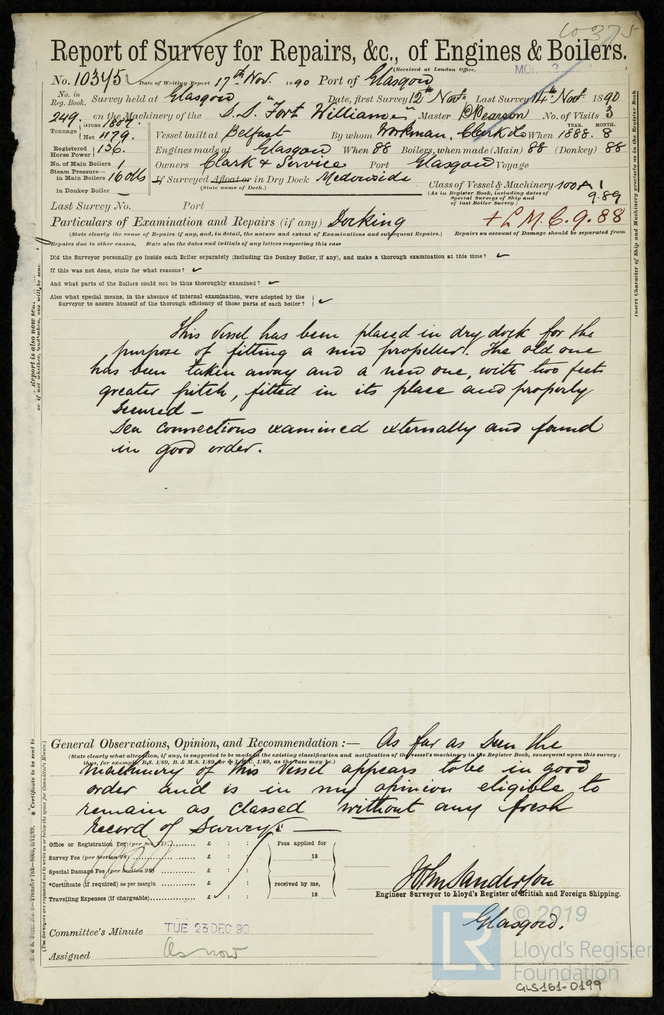 10375
Report of Survey for Repairs, &c., of Engines & Boilers.
(Received at London Office,
No. 10345 Date of Writing Report 17th Nov. 1890 Port of Glasgow
No. in Reg. Book. Survey held at Glasgow Date, first Survey 12th Nov. Last Survey 14th Nov. 1890
249. on the Machinery of the S.S. "Fort William" Master Pearson No. of Visits 3
Tonnage Gross 1807. Net 1179. Vessel built at Belfast By whom Workman, Clark & Co When 1888. 8 YEAR. MONTH.
Registered Horse Power 136. Engines made at Glasgow When 88 Boilers, when made (Main) 88 (Donkey) 88
No. of Main Boilers 1 Owners Clark & Service Port Glasgow Voyage
Steam Pressure in Main Boilers 160 lbs If Surveyed Afloat or in Dry Dock Medowside
(State name of Dock.)
in Donkey Boiler —
Class of Vessel & Machinery 100A1
(As in Register Book, including dates of Special Surveys of Ship and of last Boiler Survey)
9.89
Last Survey No. Port
+ L.M.C. 9.88
Particulars of Examination and Repairs (if any) Docking
(State clearly the cause of Repairs if any, and, in detail, the nature and extent of Examinations and subsequent Repairs.) Repairs on account of Damage should be separated from
Repairs due to other causes, State also the dates and initials of any letters respecting this case
Did the Surveyor personally go inside each Boiler separately (including the Donkey Boiler, if any), and make a thorough examination at this time?
If this was not done, state for what reasons?
And what parts of the Boilers could not be thus thoroughly examined?
Also what special means, in the absence of internal examination, were adopted by the
Surveyor to assure himself of the thorough efficiency of those parts of each boiler?
This vessel has been placed in dry dock for the
purpose of fitting a new propeller. The old one
has been taken away and a new one, with two feet
greater pitch, fitted in its place and properly
secured —
Sea connections examined externally and found
in good order.
General Observations, Opinion, and Recommendation :— As far as seen the
(State clearly what alteration, if any, is suggested to be made in the existing classification and notification of the vessel's machinery in the Register Book, consequent upon this survey:
thus, for example, B.S. 1/89, B. & M.S. 1/89, or L.M.C. 1/89, as the case may be.)
machinery of this vessel appears to be in good
order and is in my opinion eligible to
remain as classed without any fresh
record of Survey. —
Office or Registration Fee (per Sec. 27) £ : : Fees applied for
Survey Fee (per Section 28) £ : : 18
Special Damage Fee (per Section 28) £ : :
*Certificate (if required) as per margin £ : : received by me,
Travelling Expenses (if chargeable) £ : : 18
John Sanderson
Engineer Surveyor to Lloyd's Register of British and Foreign Shipping.
Glasgow.
Committee's Minute TUE 23 DEC 90
Assigned As now
LR © 2019
Lloyd's Register
Foundation
GLS161-0199
Insert Character of Ship and Machinery precisely as in the Register Book